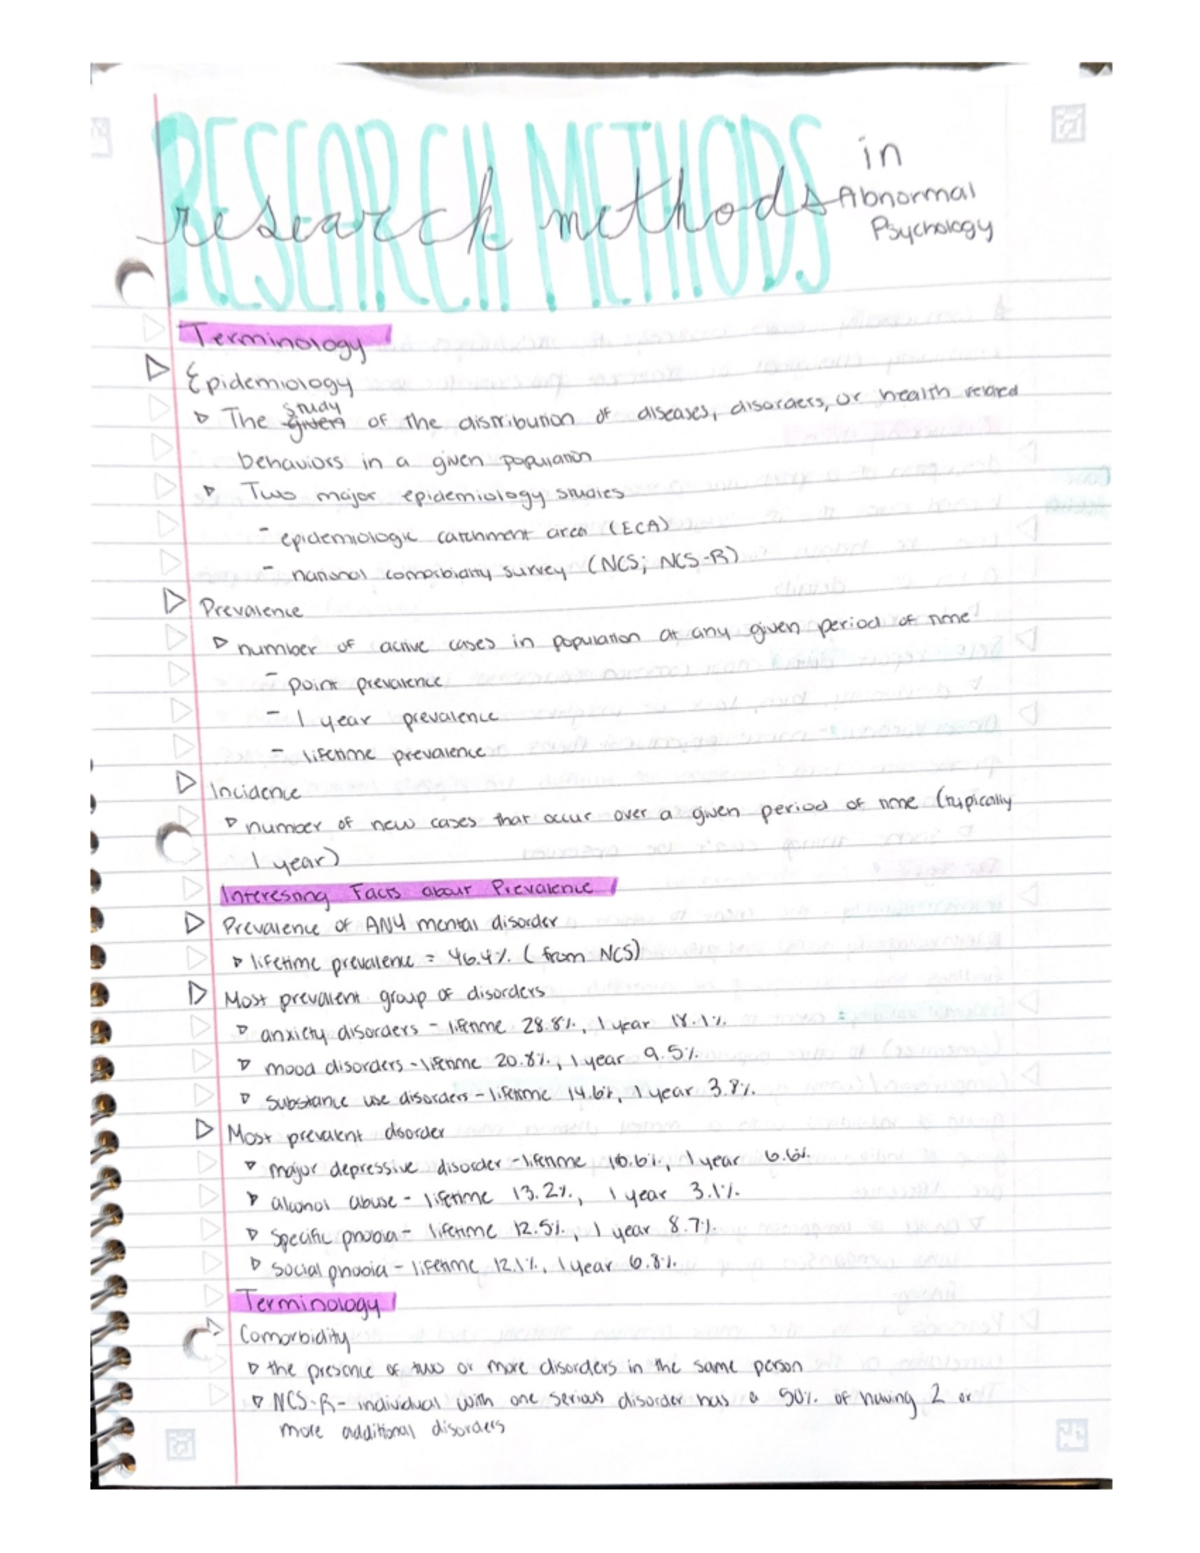 RESEARCH METHODS
research methods
in
Abnormal
Psychology
Terminology
Epidemiology
The given study of the distribution of diseases, disorders, or health related
behaviors in a given population
Two major epidemiology studies
- epidemiologic catchment area (ECA)
- national comorbidity survey (NCS; NCS-R)
Prevalence
number of active cases in population at any given period of time
- point prevalence
- 1 year prevalence
- lifetime prevalence
Incidence
number of new cases that occur over a given period of time (typically
1 year)
Interesting Facts about Prevalence
Prevalence of ANY mental disorder
lifetime prevalence = 46.4% (from NCS)
Most prevalent group of disorders
anxiety disorders - lifetime 28.8%, 1 year 18.1%
mood disorders - lifetime 20.8%, 1 year 9.5%
Substance use disorders - lifetime 14.6%, 1 year 3.8%
Most prevalent disorder
major depressive disorder - lifetime 16.6%, 1 year 6.6%
alcohol abuse - lifetime 13.2%, 1 year 3.1%
Specific phobia - lifetime 12.5%, 1 year 8.7%
social phobia - lifetime 12.1%, 1 year 6.8%
Terminology
Comorbidity
the presence of two or more disorders in the same person
NCS-R - individual with one serious disorder has a 50% of having 2 or
more additional disorders